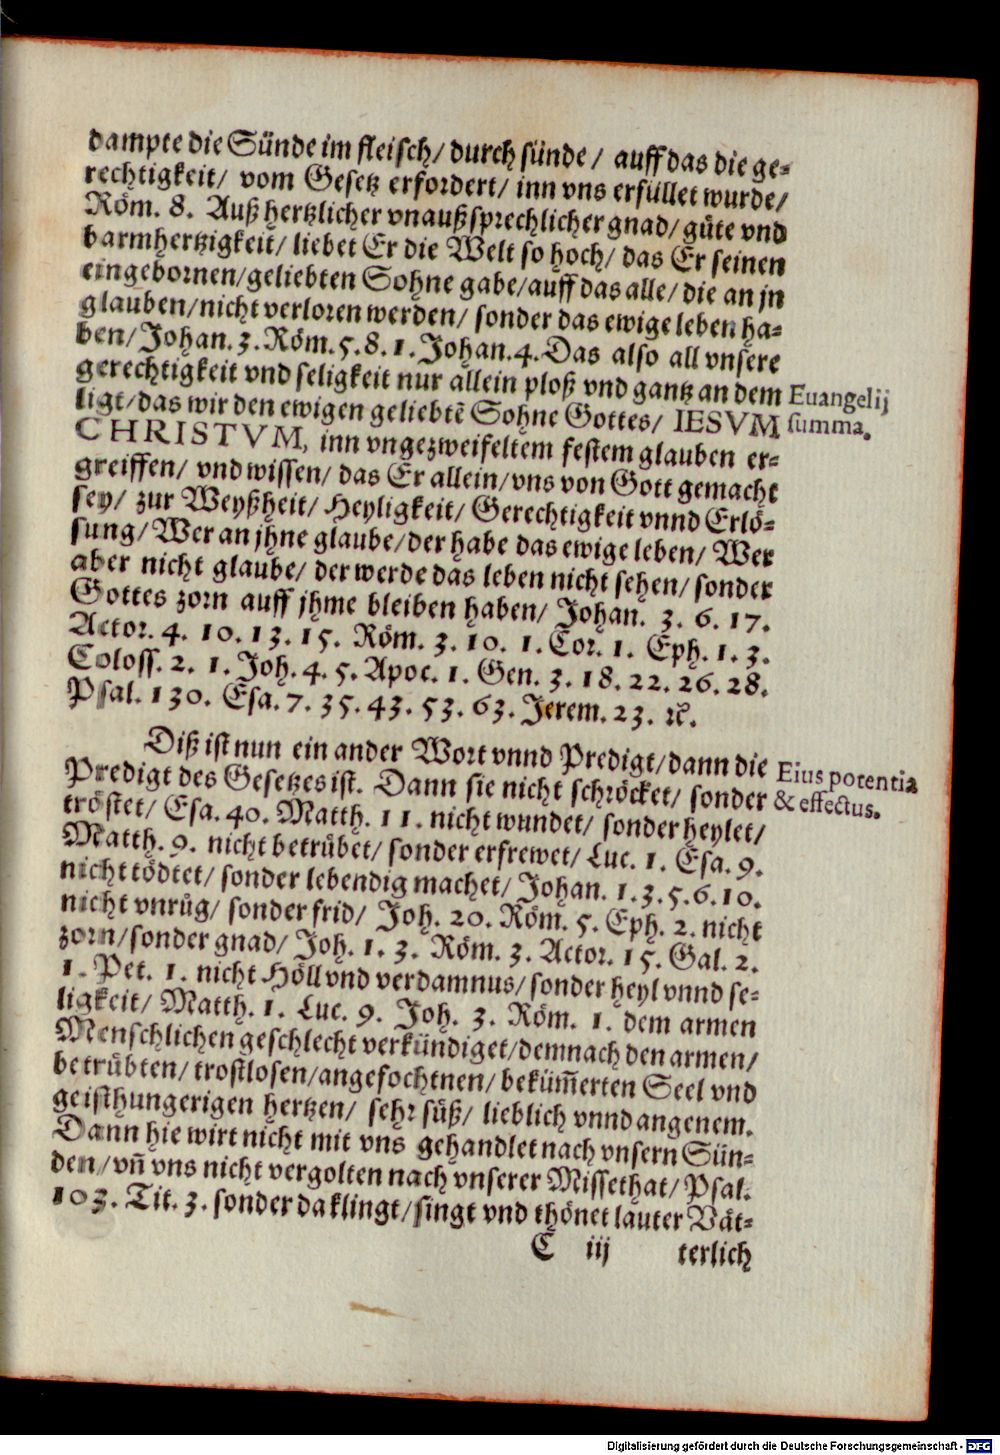 dampte die Sünde im fleisch/ durch sünde/ auff das die ge-
rechtigkeit/ vom Gesetz erfordert/ inn vns erfüllet wurde/
Röm. 8. Auß hertzlicher vnaußsprechlicher gnad/ güte vnd
barmhertzigkeit/ liebet Er die Welt so hoch/ das Er seinen
eingebornen/ geliebten Sohne gabe/ auff das alle/ die an jn
glauben/ nicht verloren werden/ sonder das ewige leben ha-
ben/ Johan. 3. Röm. 5. 8. 1. Johan. 4. Das also all vnsere
gerechtigkeit vnd seligkeit nur allein ploß vnd gantz an dem
Euangelij
ligt/ das wir den ewigen geliebtẽ Sohne Gottes/ IESVM
summa.
CHRISTVM, inn vngezweifeltem festem glauben er-
greiffen/ vnd wissen/ das Er allein/ vns von Gott gemacht
sey/ zur Weyßheit/ Heyligkeit/ Gerechtigkeit vnnd Erlö-
sung/ Wer an jhne glaube/ der habe das ewige leben/ Wer
aber nicht glaube/ der werde das leben nicht sehen/ sonder
Gottes zorn auff jhme bleiben haben/ Johan. 3. 6. 17.
Actor. 4. 10. 13. 15. Röm. 3. 10. 1. Cor. 1. Eph. 1. 3.
Coloss. 2. 1. Joh. 4. 5. Apoc. 1. Gen. 3. 18. 22. 26. 28.
Psal. 130. Esa. 7. 35. 43. 53. 63. Jerem. 23. ꝛc.
Diß ist nun ein ander Wort vnnd Predigt/ dann die
Eius potentia
Predigt des Gesetzes ist. Dann sie nicht schröcket/ sonder
& effectus.
tröstet/ Esa. 40. Matth. 11. nicht wundet/ sonder heylet/
Matth. 9. nicht betrübet/ sonder erfrewet/ Luc. 1. Esa. 9.
nicht tödtet/ sonder lebendig machet/ Johan. 1. 3. 5. 6. 10.
nicht vnrüg/ sonder frid/ Joh. 20. Röm. 5. Eph. 2. nicht
zorn/ sonder gnad/ Joh. 1. 3. Röm. 3. Actor. 15. Gal. 2.
1. Pet. 1. nicht Höll vnd verdamnus/ sonder heyl vnnd se-
ligkeit/ Matth. 1. Luc. 9. Joh. 3. Röm. 1. dem armen
Menschlichen geschlecht verkündiget/ demnach den armen/
betrübten/ trostlosen/ angefochtnen/ bekům̃erten Seel vnd
geisthungerigen hertzen/ sehr süß/ lieblich vnnd angenem.
Dann hie wirt nicht mit vns gehandlet nach vnsern Sün-
den/ vñ vns nicht vergolten nach vnserer Missethat/ Psal.
103. Tit. 3. sonder da klingt/ singt vnd thönet lauter Vät-
C iij terlich
Digitalisierung gefördert durch die Deutsche Forschungsgemeinschaft - DFG